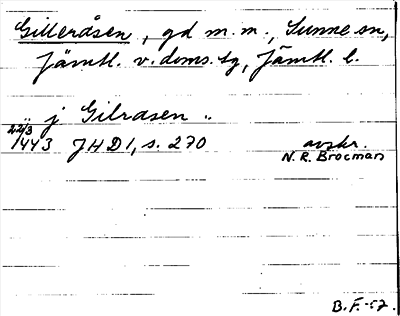 Gilleråsen, gd m.m., Sunne sn,
Jämtl. v. doms.tg, Jämtl. l.
"j Gilrasen"
22/3
1443 JHD1, s. 270 avskr.
N. R. Brocman
B.F.-52.